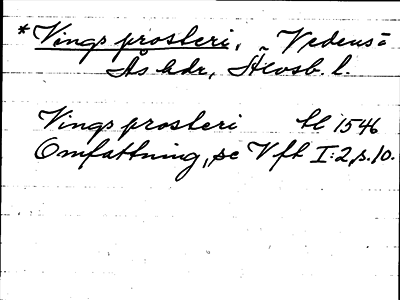 *Vings prosteri, Vedens=
Ås hdr, Älvsb. l.
Vings prosteri bl 1546
Omfattning, se Vfh I:2, s. 10.